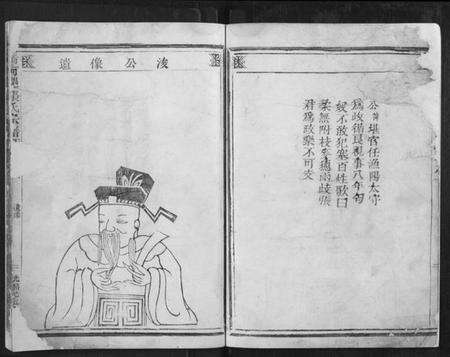 公諱堪官任漁陽太守
爲政備具視事八年匈
奴不敢犯塞百姓歌曰
桑無附枝麥穗兩岐張
君爲政樂不可支
浚公像遺